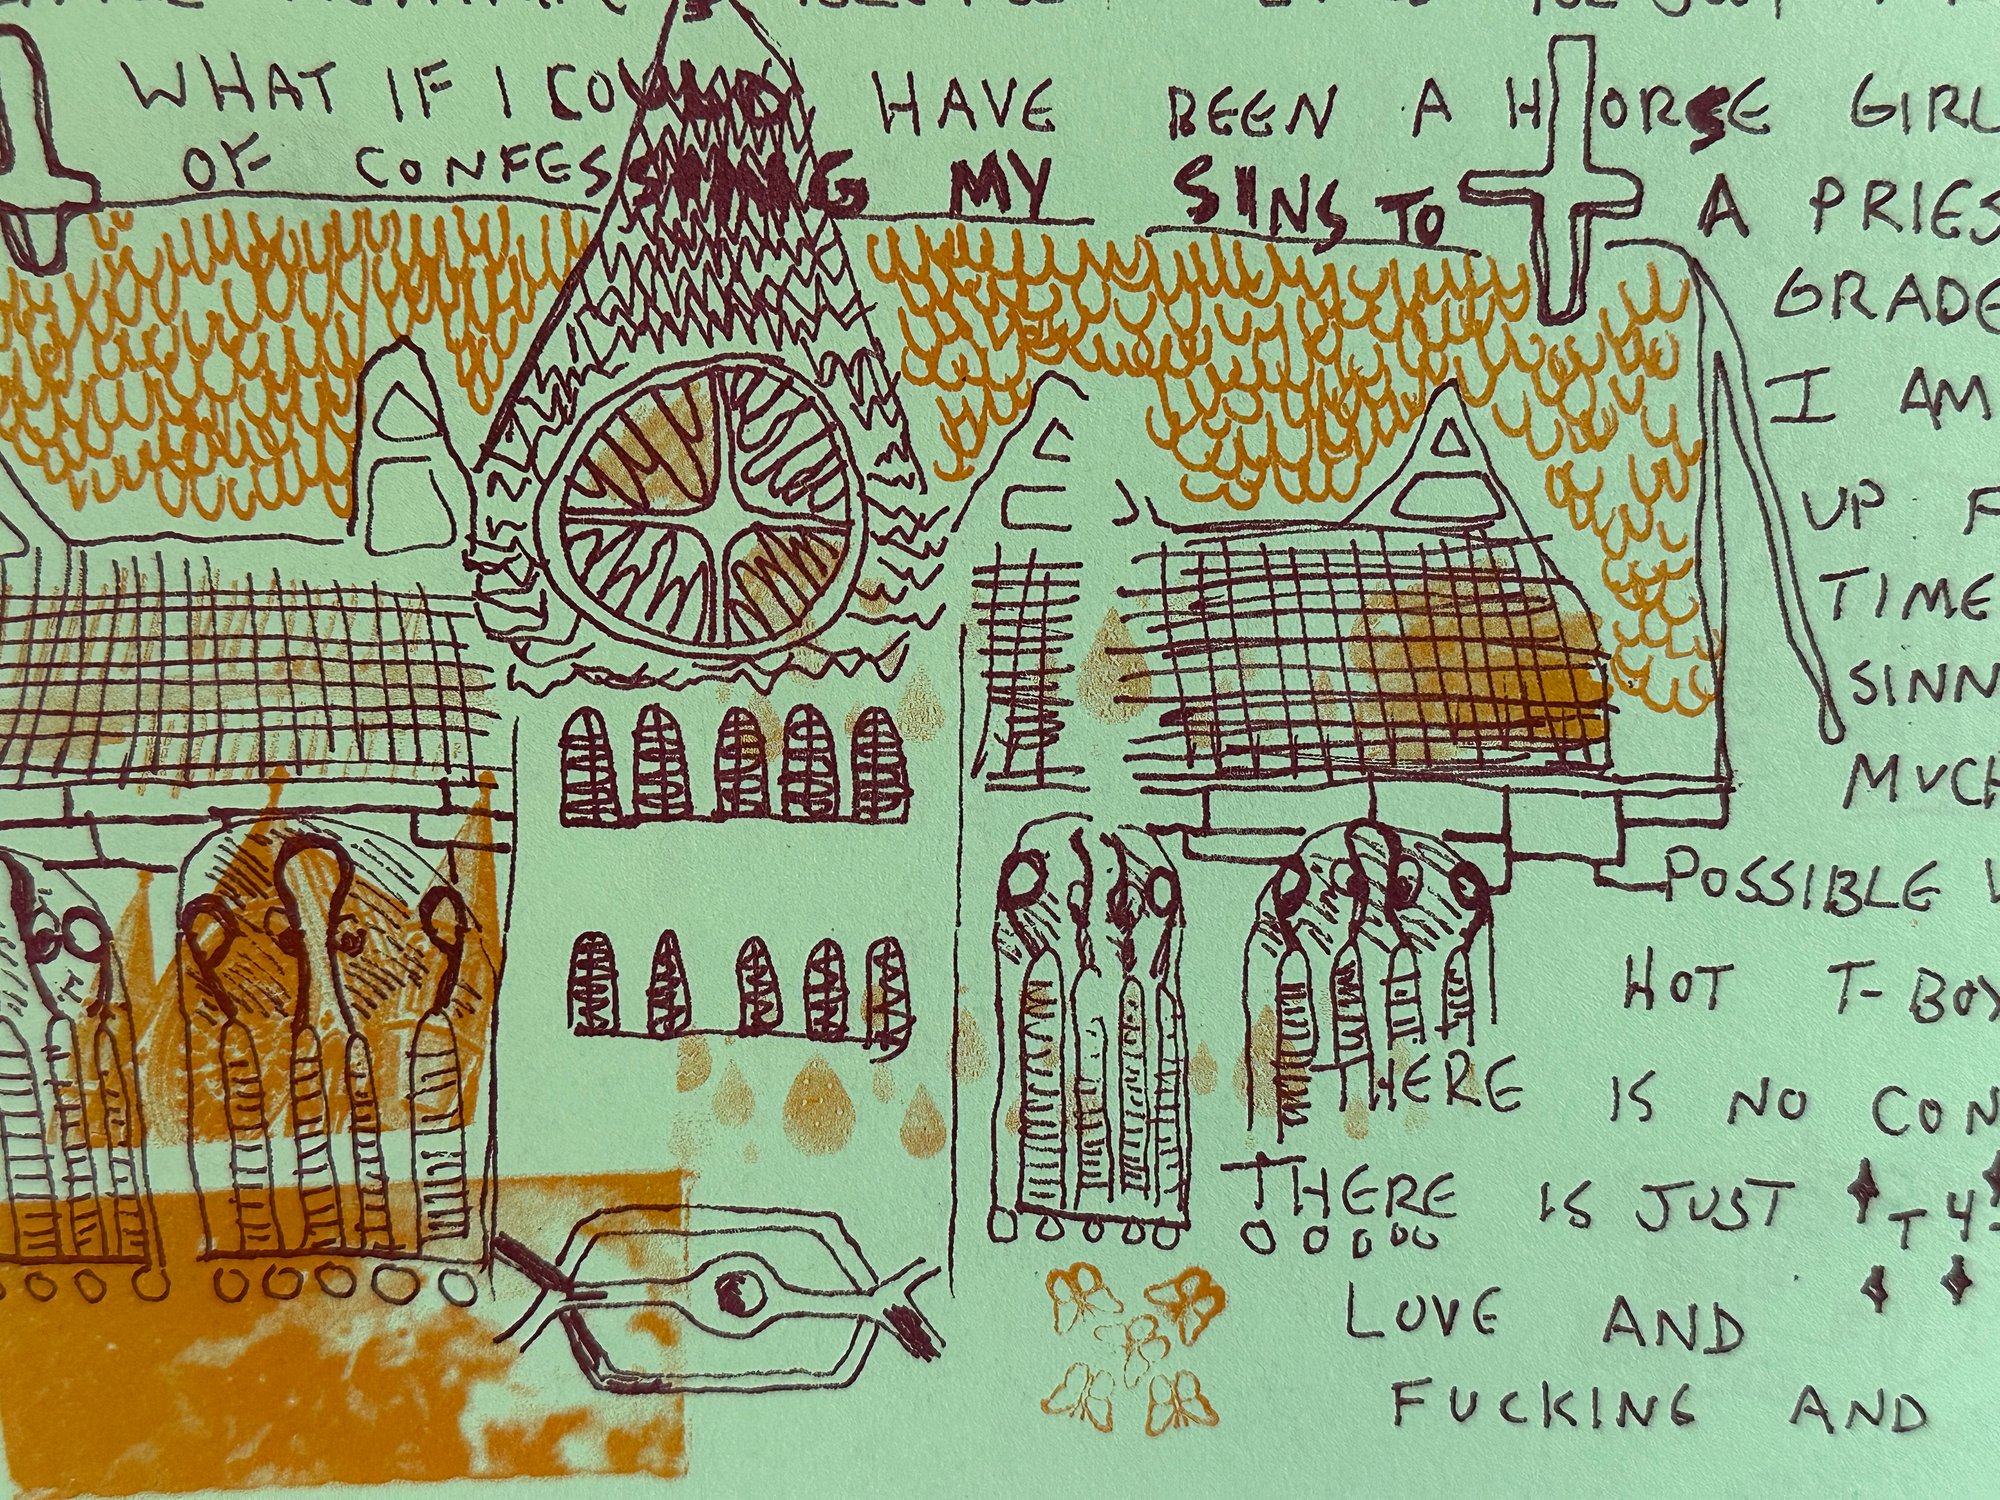 WHAT IF I COULD HAVE BEEN A HORSE GIRL
OF CONFESSING MY SINS TO A PRIES
GRADE
I AM
UP F
TIME
SINN
MUCH
POSSIBLE
HOT T-BOY
THERE IS NO CON
THERE IS JUST T4T
LOVE AND
FUCKING AND